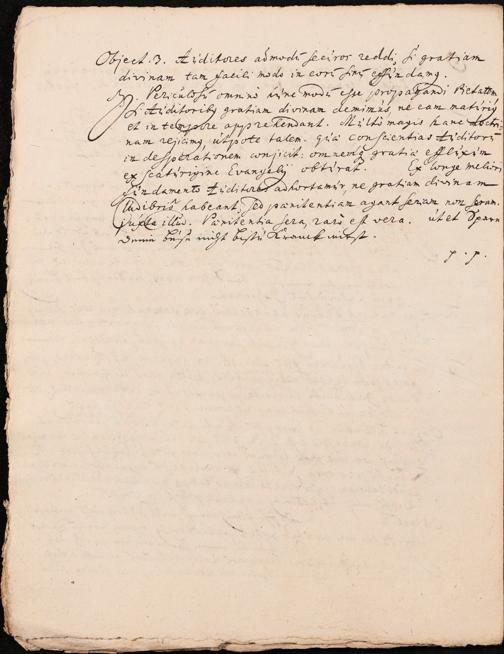 Object. 3. Auditores admodũ securos reddi, si gratiam
divinam tam facili modo in eorũ sinũ effundamg.
Rx. Periculosũ omninò hunc modũ esse propagandi Pietatem
si Auditoribg gratiam divinam demimus, ne eam maturè
et in tempore apprehendant. Multò magis hanc doctri
nam rejicimg, utpote talem, quae conscientias Auditorũ
in desperationem conjicit: omnemqg gratiae effluxum
ex scaturigine Evangelij obturat. Ex longe meliori
fundamento Auditores adhortamur, ne gratiam divinam
ludibrio habeant, sed paenitentiam agant seriam non seram.
juxta illud. Paenitentia sera, rarò est vera. ut et Spare
deine buße nicht bistu Kranck wirst.